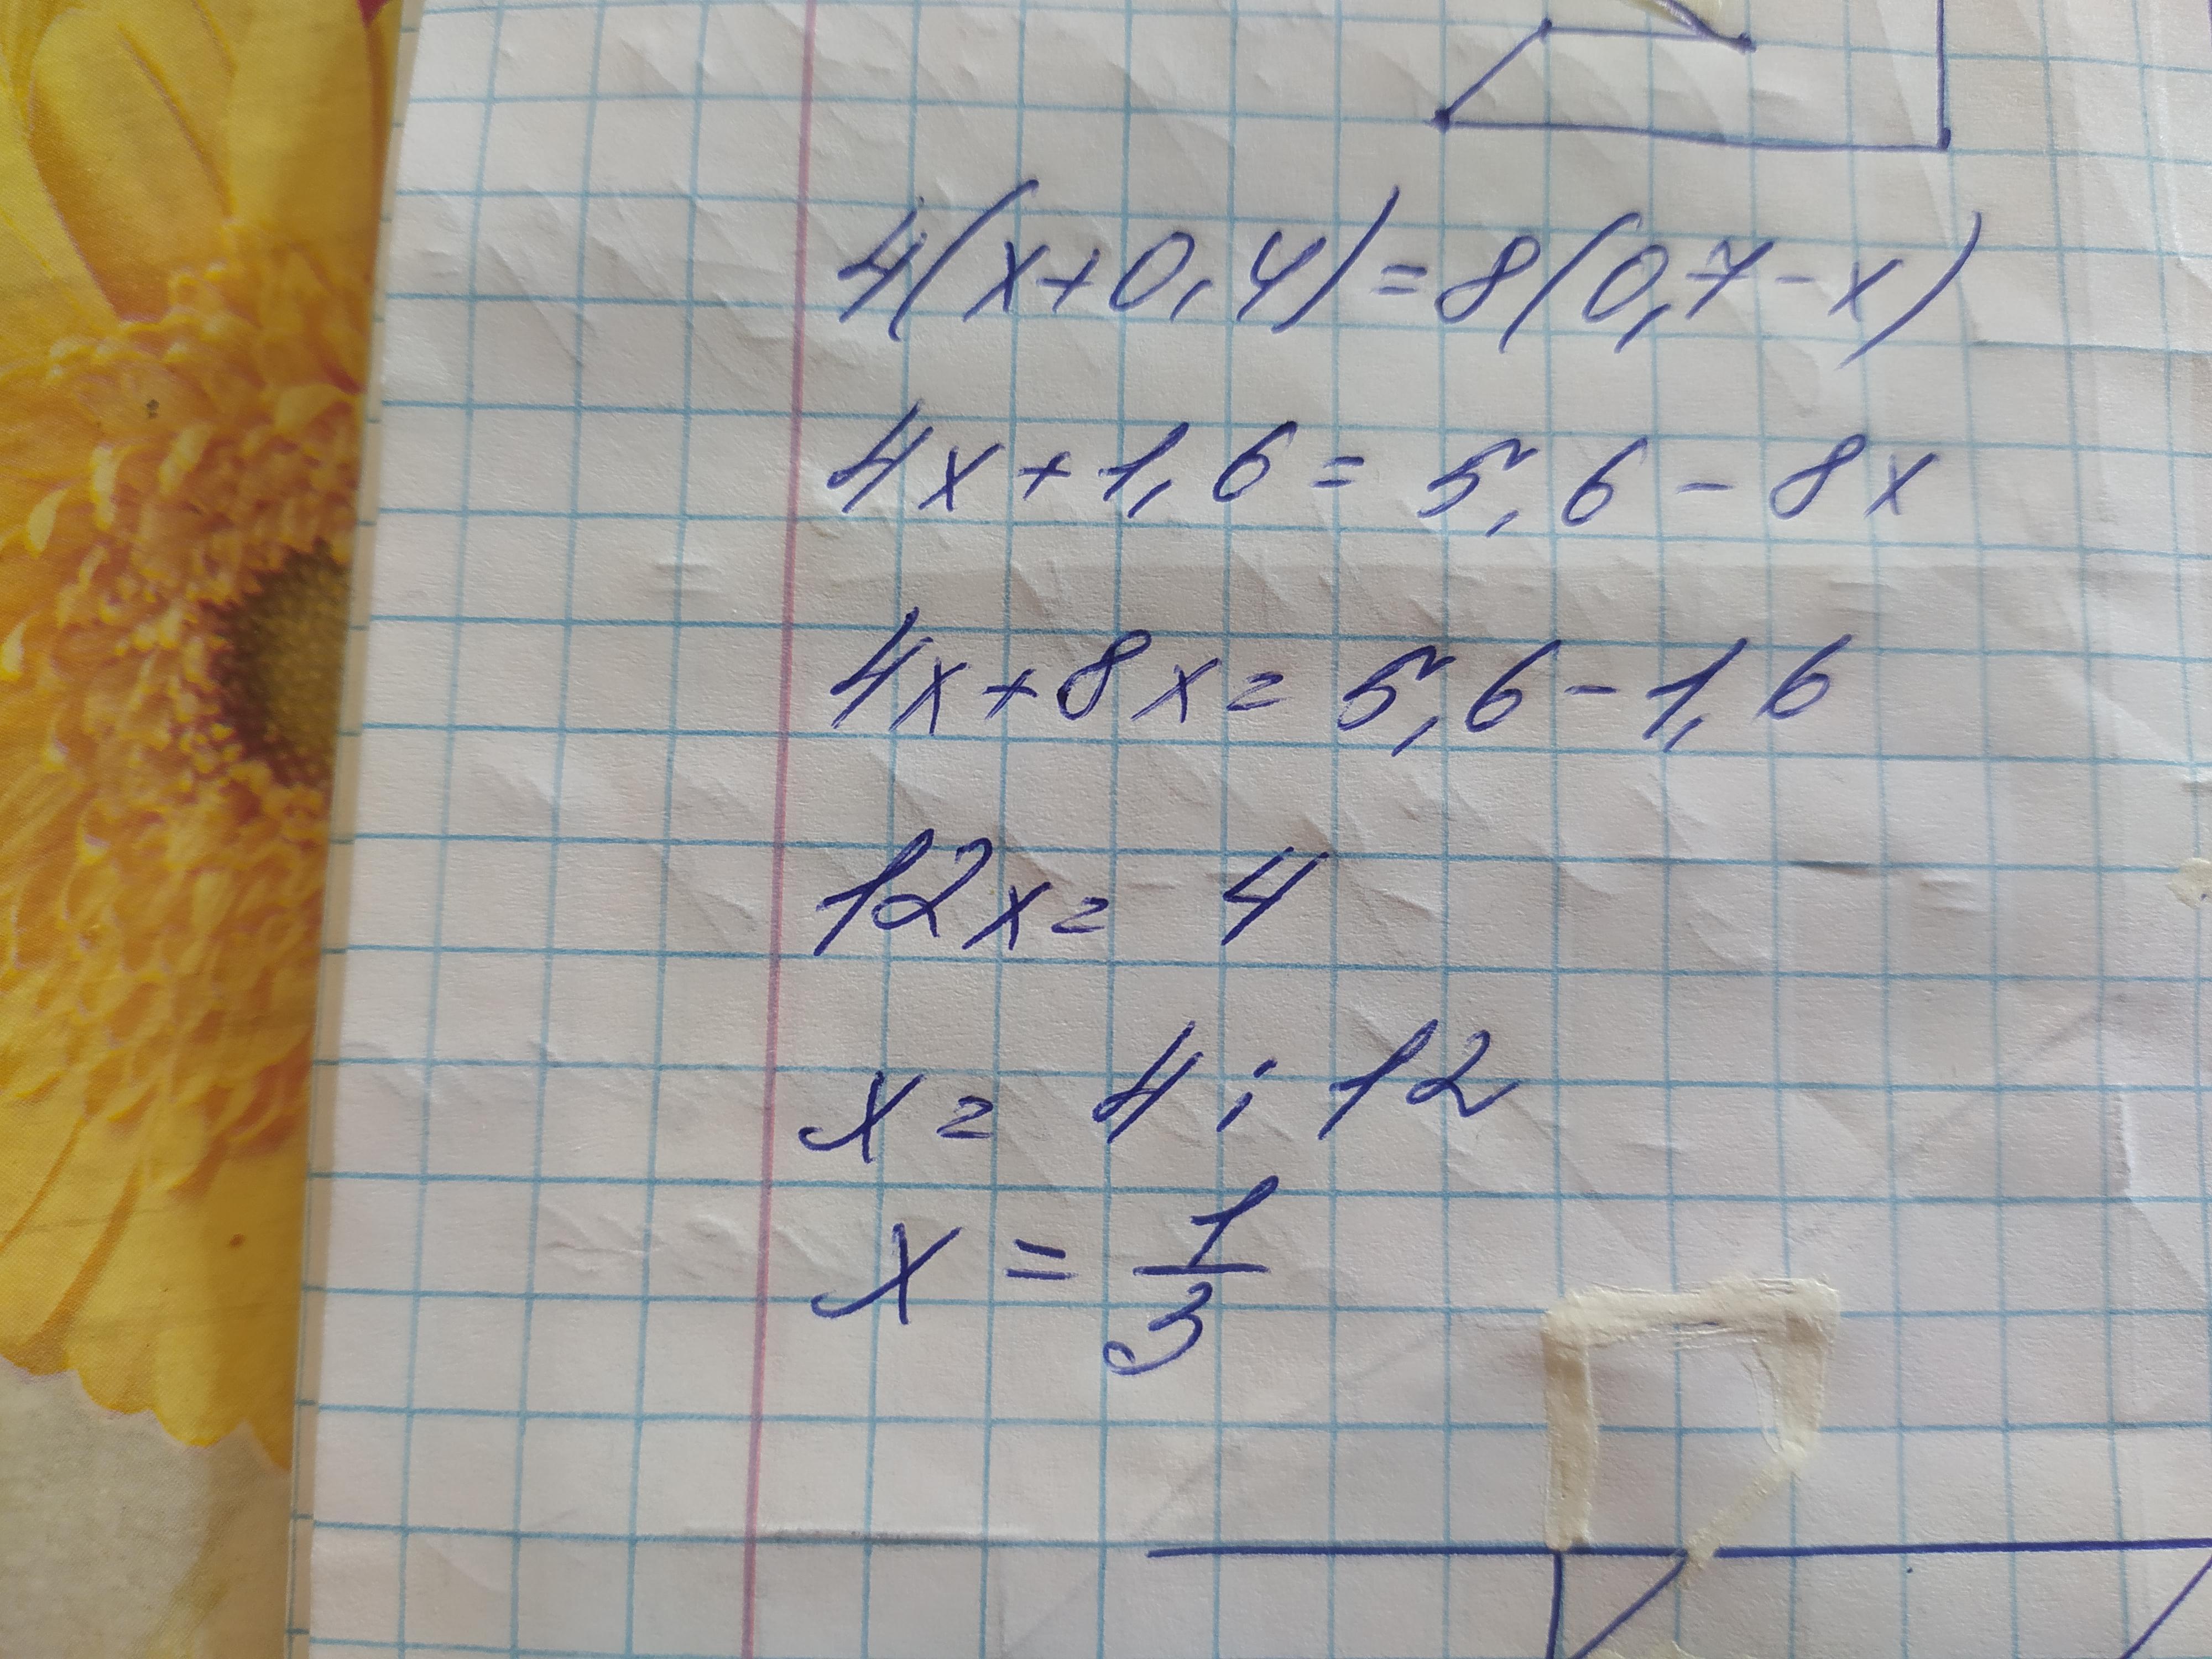 4(x+0,4)=8(0,7-x)
4x+1,6=5,6-8x
4x+8x=5,6-1,6
12x=4
x=4:12
x=1/3